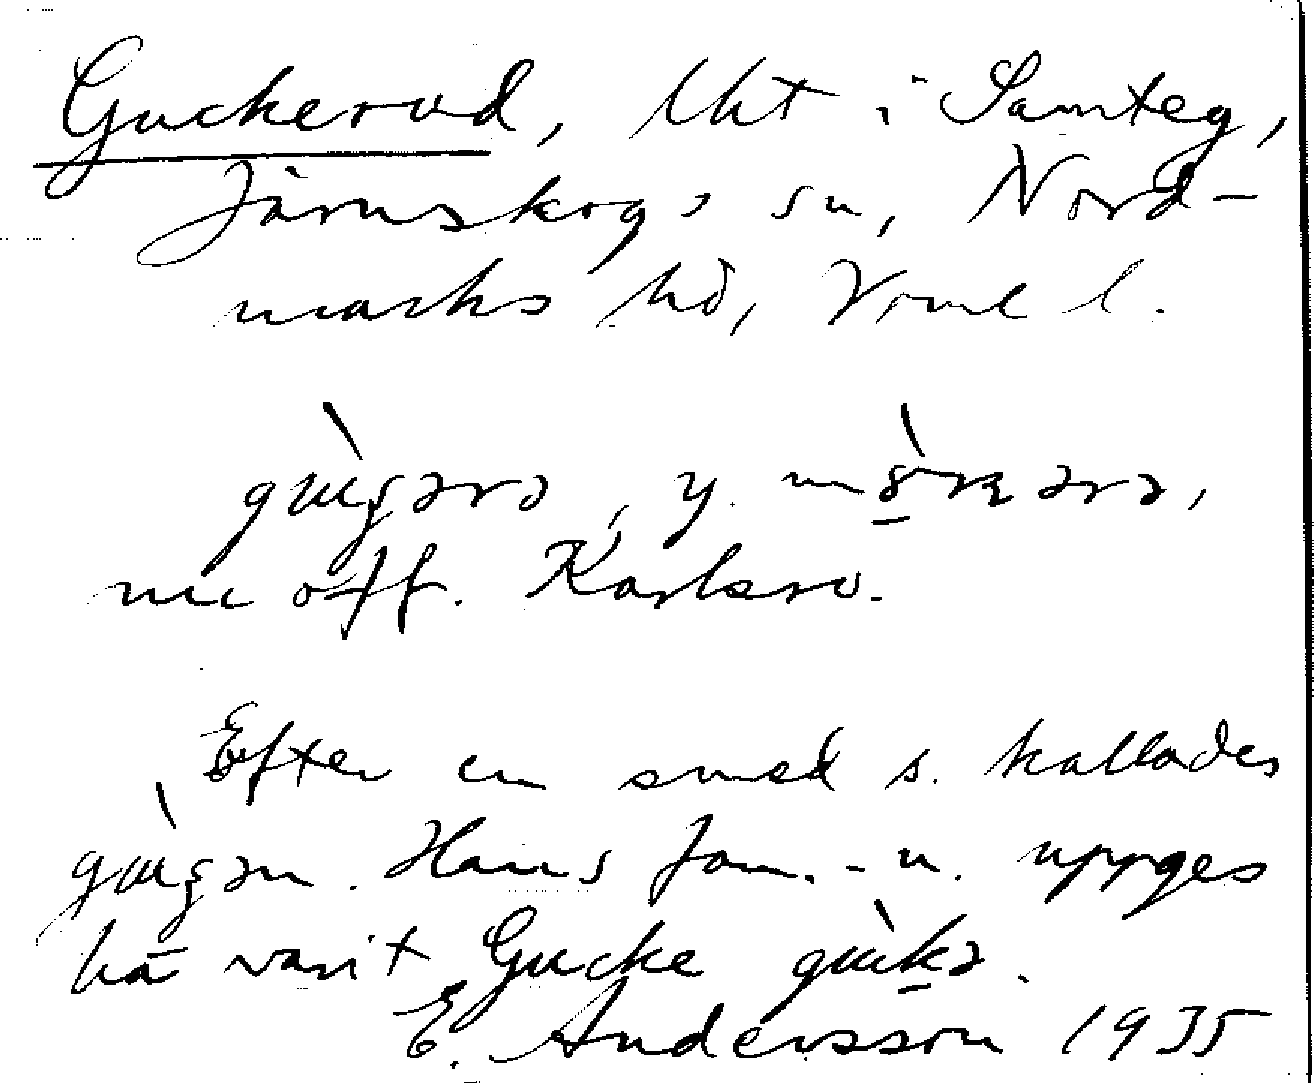 Guckerud, lht i Samteg,
Järnskogs sn, Nord-
marks hd, Vrml l.
y.
nu off. Karlsro.
Efter en smed s. kallades
Hans fam.-n. uppges
ha varit Gucke
E. Andersson 1935